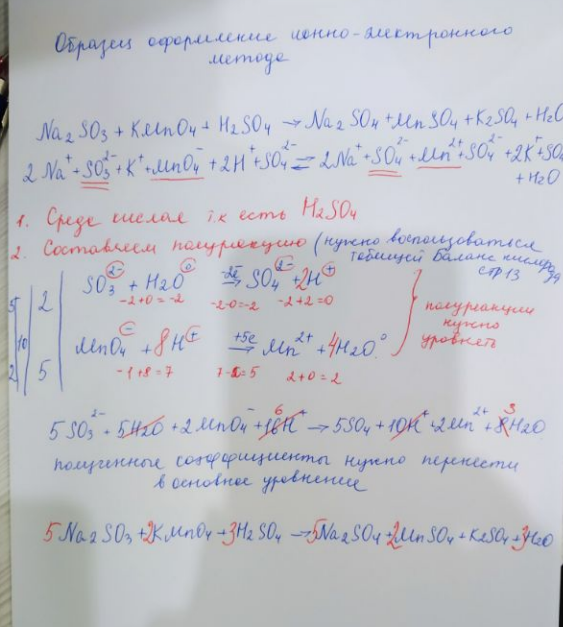 Образец оформление ионно-электронного
метода
Na₂SO₃ + KMnO₄ + H₂SO₄ → Na₂SO₄ + MnSO₄ + K₂SO₄ + H₂O
2Na⁺ + SO₃²⁻ + K⁺ + MnO₄⁻ + 2H⁺ + SO₄²⁻ ⇌ 2Na⁺ + SO₄²⁻ + Mn²⁺ + SO₄²⁻ + 2K⁺ + SO₄
+ H₂O
1. Среда кислая т.к есть H₂SO₄
2. Составляем полуреакцию (нужно воспользоваться
таблицей Баланс кислорода
стр 13
5 | 2 | SO₃²⁻ + H₂O⁰ -2е→ SO₄²⁻ + 2H⁺
-2+0=-2 -2-0=-2 -2+2=0
10
2 | 5 | MnO₄⁻ + 8H⁺ +5е→ Mn²⁺ + 4H₂O⁰
-1+8=7 7-2=5 2+0=2
полуреакции
нужно
уровнять
5SO₃²⁻ + 5H₂O + 2MnO₄⁻ + 16H⁺ 6 → 5SO₄ + 10H⁺ + 2Mn²⁺ + 8H₂O 3
полученные коэффициенты нужно перенести
в основное уравнение
5Na₂SO₃ + 2KMnO₄ + 3H₂SO₄ → 5Na₂SO₄ + 2MnSO₄ + K₂SO₄ + 3H₂O